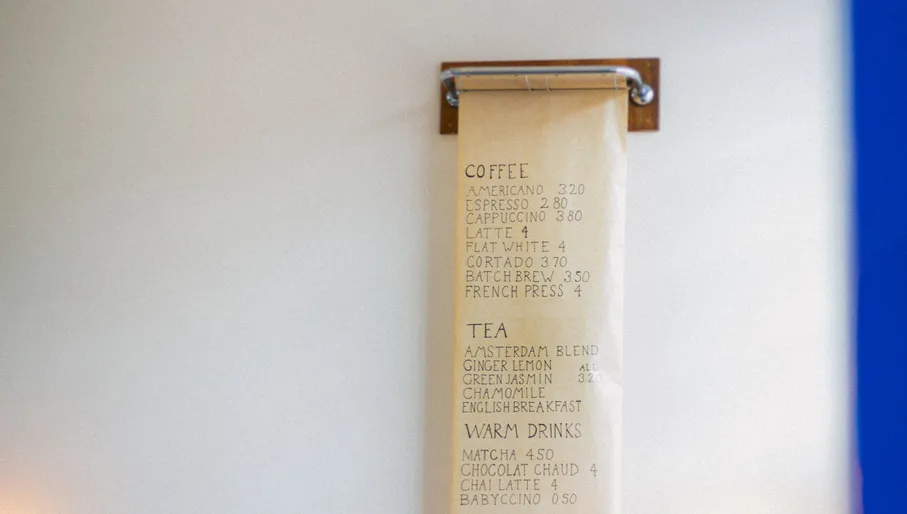 COFFEE
AMERICANO 3.20
ESPRESSO 2.80
CAPPUCCINO 3.80
LATTE 4
FLAT WHITE 4
CORTADO 3.70
BATCH BREW 3.50
FRENCH PRESS 4
TEA
AMSTERDAM BLEND
GINGER LEMON ALL
GREEN JASMIN 3.20
CHAMOMILE
ENGLISH BREAKFAST
WARM DRINKS
MATCHA 4.50
CHOCOLAT CHAUD 4
CHAI LATTE 4
BABYCCINO 0.50